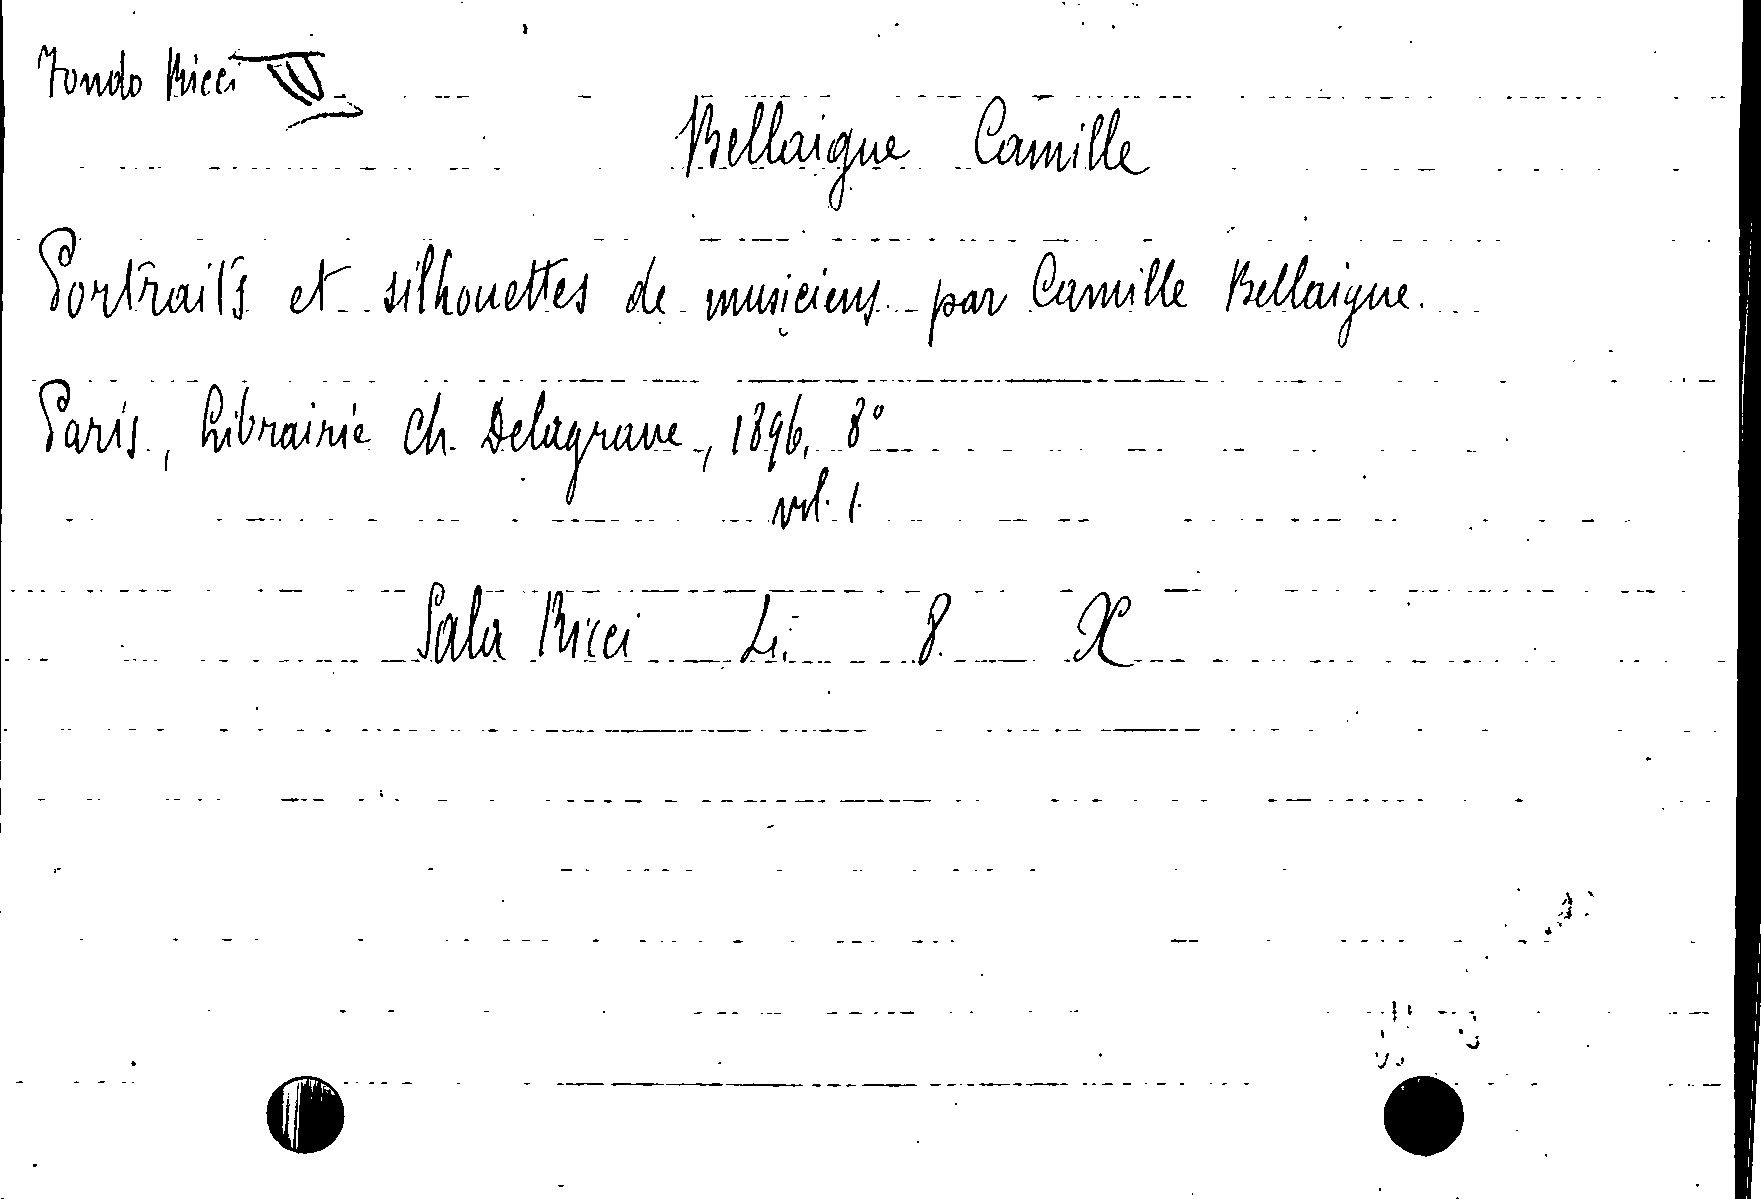 Fondo Ricci
Bellaigue Camille
Portraits et silhouettes de musiciens par Camille Bellaigue.
Paris, Librairie Ch. Delagrave, 1896, 8°
vol. 1.
Sala Ricci Li. 8. X